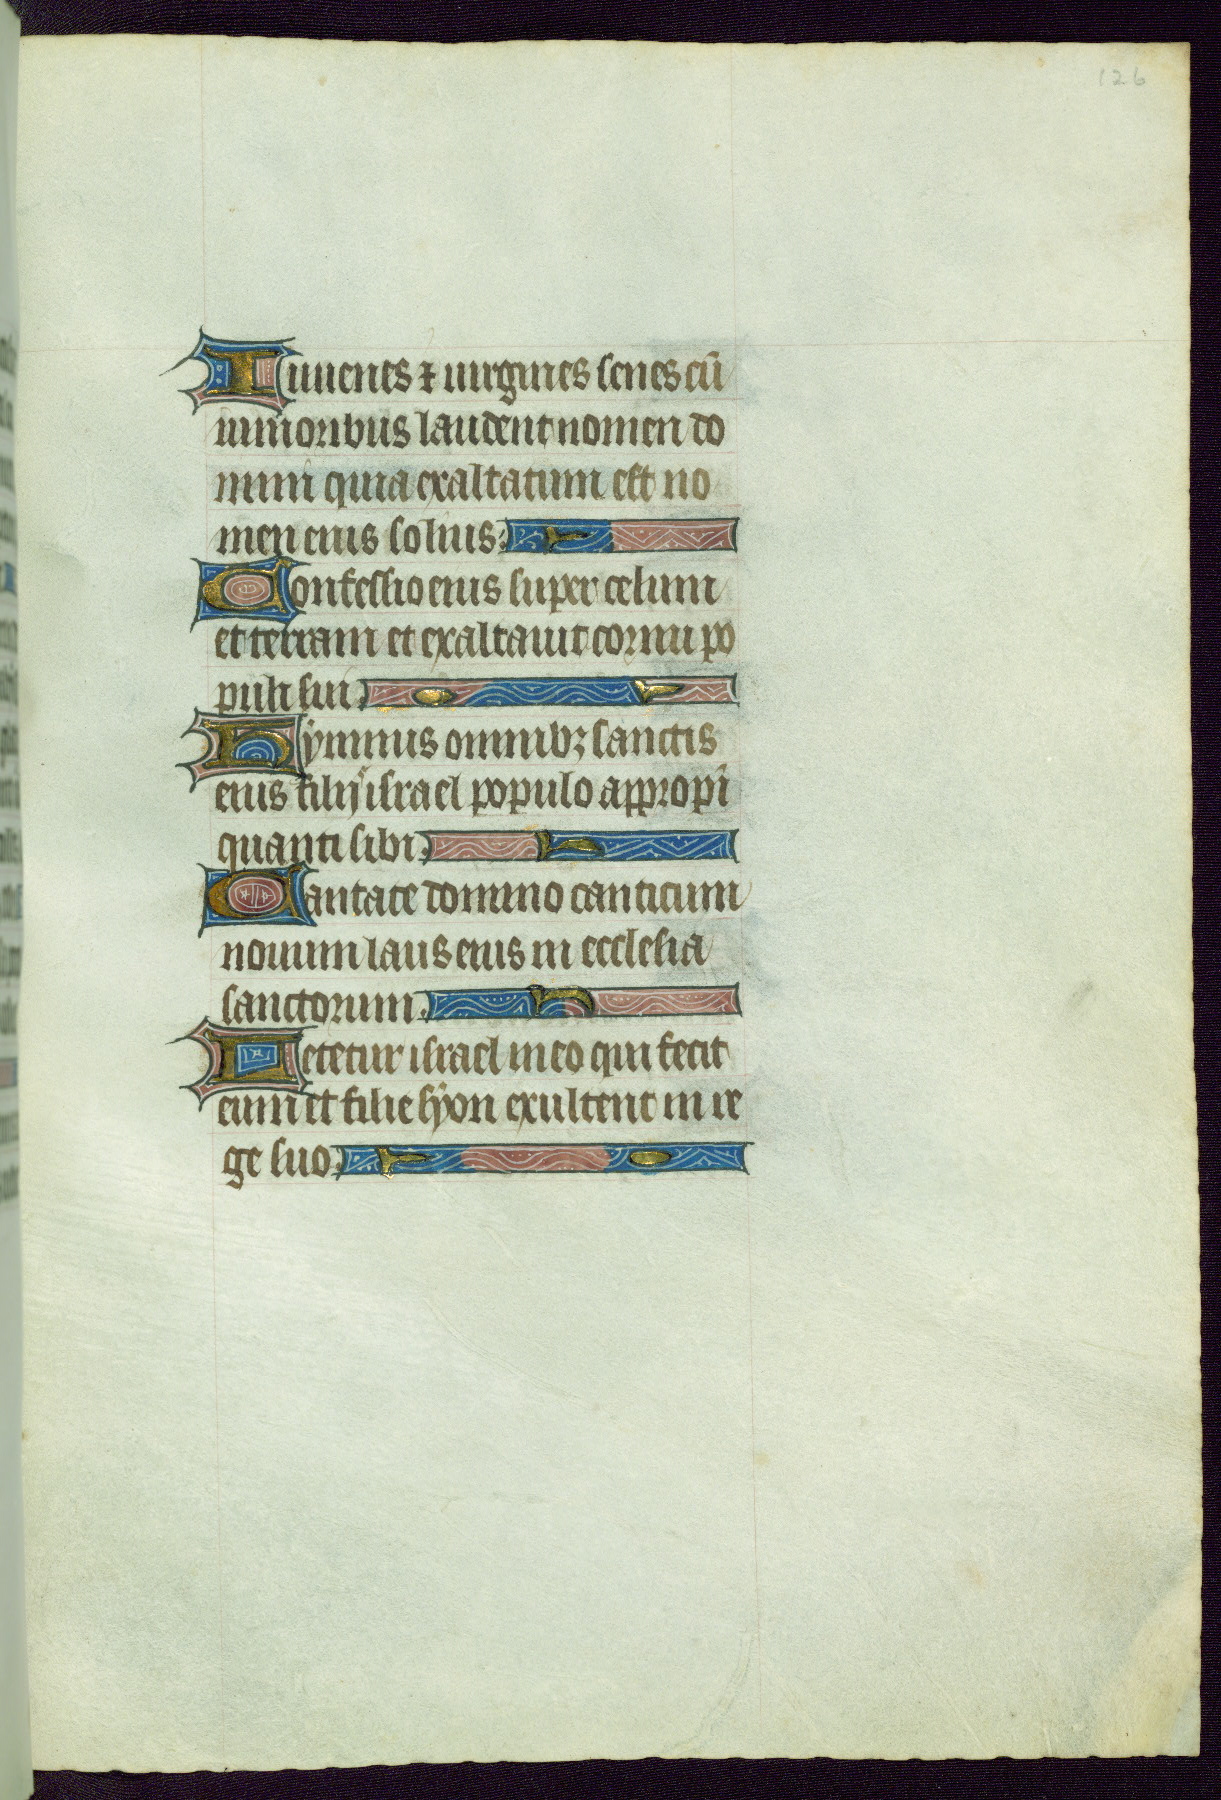 126
Iuuenes ⁊ uirgines senes cū
iunioribus laudent nomen do
mini quia exaltatum est no
men eius solius.
Confessio eius super celum
et terram et exaltauit cornu po
puli sui.
Hymnus omnibꝫ sanctis
eius filijs israel populo appropī
quanti sibi.
Cantate domino canticum
nouum laus eius in ecclesia
sanctorum.
Letetur israel in eo qui fecit
eum et filie syon exultent in re
ge suo.